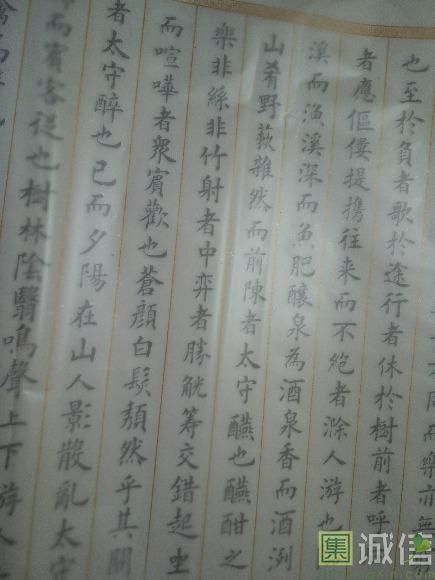 同而樂亦無
也至於負者歌於途行者休於樹前者呼
者應傴僂提攜往来而不絕者滁人游也
溪而漁溪深而魚肥釀泉為酒泉香而酒洌
山肴野蔌雜然而前陳者太守醼也醼酣之
樂非絲非竹射者中弈者勝觥籌交錯起坐
而喧嘩者衆賓歡也蒼顔白髮頹然乎其間
者太守醉也已而夕陽在山人影散亂太守
而賓客從也樹林陰翳鳴聲上下游人
集 诚信